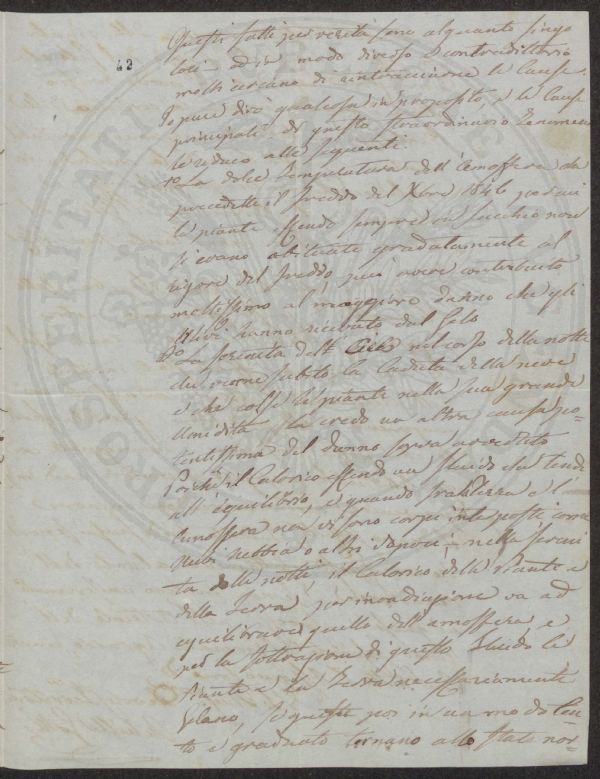 42
Questi fatti per verità sono alquanto singo
lari ed in modo diverso e contradittorio
molti cercano di rintracciarne le Cause.
Io pure dirò qualcosa in proposito, e le Cause
principali di questo straordinario Fenomeno
le riduco alle seguenti.
1o La dolce temperatura dell' Atmosfera che
precedette il freddo del Xbre 1846 per cui
le piante essendo sempre in succhio non
si erano abituate gradatamente al
rigore del freddo, può avere contribuito
moltissimo al maggiore danno che gli
Ulivi hanno ricevuto dal Gelo
2o La serenità dell' Cielo nel corso della notte
che venne subito la Caduta della neve
e che colse le piante nella sua grande
Umidità, la credo un altra causa po=
tentissima del danno sopra
Poichè il Calorico essendo un fluido che tende
all' equilibrio, e quando fra la terra e l'
atmosfera non vi sono corpi interposti come
nubi nebbia o altri vapori, nella sereni
tà delle notti, il Calorico delle Piante e
della Terra, per irradiazione va ad
equilibrare quello dell' atmosfera, e
per la sottrazione di questo fluido le
Piante e la Terra necessariamente
Gelano, se queste poi in un modo len
to e graduato tornano allo stato nor=
PROSPERITATI